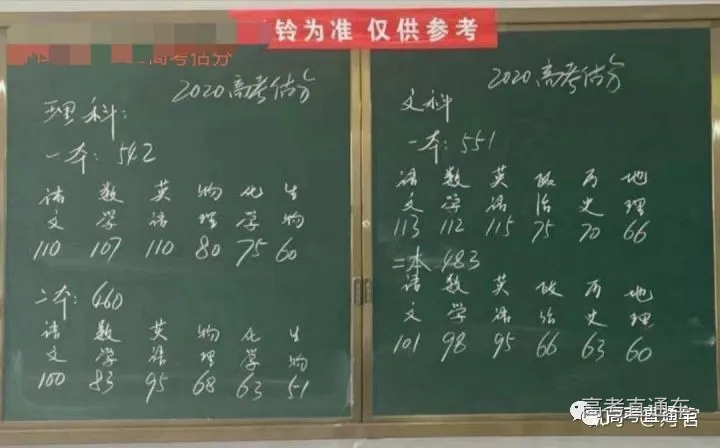 铃为准 仅供参考
高考估分
2020高考估分
理科:
一本: 542
语 数 英 物 化 生
文 学 语 理 学 物
110 107 110 80 75 60
二本: 460
语 数 英 物 化 生
文 学 语 理 学 物
100 83 95 68 63 51
2020高考估分
文科
一本: 551
语 数 英 政 历 地
文 学 语 治 史 理
113 112 115 75 70 66
二本 483
语 数 英 政 历 地
文 学 语 治 史 理
101 98 95 66 63 60
高考直通车